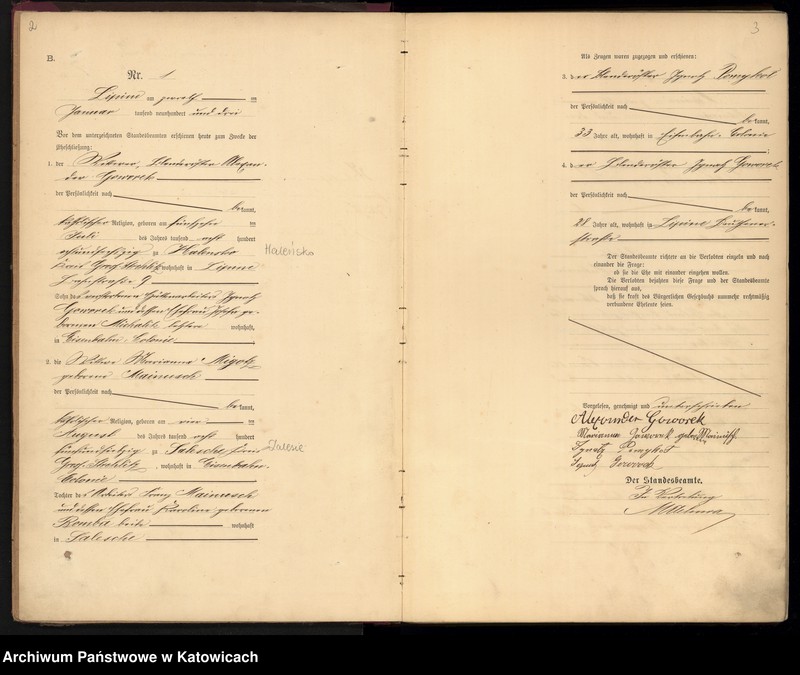 2
B.
Nr. 1
Lipine am zwölf ten
Januar tausend neunhundert und drei
Vor dem unterzeichneten Standesbeamten erschienen heute zum Zwecke der
Eheschließung:
1. der Witwer,
der Goworek
der Persönlichkeit nach
bekannt,
katholischer Religion, geboren am fünfzehn ten
Juli des Jahres tausend acht hundert
zu Halensko
Kreis Groß Strehlitz, wohnhaft in Lipine
9
Sohn des verstorbenen Hüttenarbeiters Ignatz
Goworek und dessen Ehefrau ge-
borenen Michalik wohnhaft
in Eisenbahn-Colonie
Haleńsko
2. die Witwe Marianna Migotz
geborene Mainusch
der Persönlichkeit nach
bekannt,
katholischer Religion, geboren am vier ten
August des Jahres tausend acht hundert
fünfundsechzig zu Salesche, Kreis
Groß Strehlitz, wohnhaft in Eisenbahn-
Colonie
Zalesie
Tochter des Franz Mainusch
und dessen Ehefrau Karoline geborenen
Bomba beide wohnhaft
in Salesche
3
Als Zeugen waren zugezogen und erschienen:
3. der Ignatz Pomykol
der Persönlichkeit nach
bekannt,
33 Jahre alt, wohnhaft in Eisenbahn-Colonie
;
4. der Ignatz Goworek
der Persönlichkeit nach
bekannt,
28 Jahre alt, wohnhaft in Lipine Beuthener-
straße
Der Standesbeamte richtete an die Verlobten einzeln und nach
einander die Frage:
ob sie die Ehe mit einander eingehen wollen.
Die Verlobten bejahten diese Frage und der Standesbeamte
sprach hierauf aus,
daß sie kraft des Bürgerlichen Gesetzbuchs nunmehr rechtmäßig
verbundene Eheleute seien.
Vorgelesen, genehmigt und unterschrieben
Alexander Goworek
Marianna Goworek geborne Mainusch
Ignatz Pomykol
Ignatz Goworek
Der Standesbeamte.
In Vertretung
Archiwum Państwowe w Katowicach